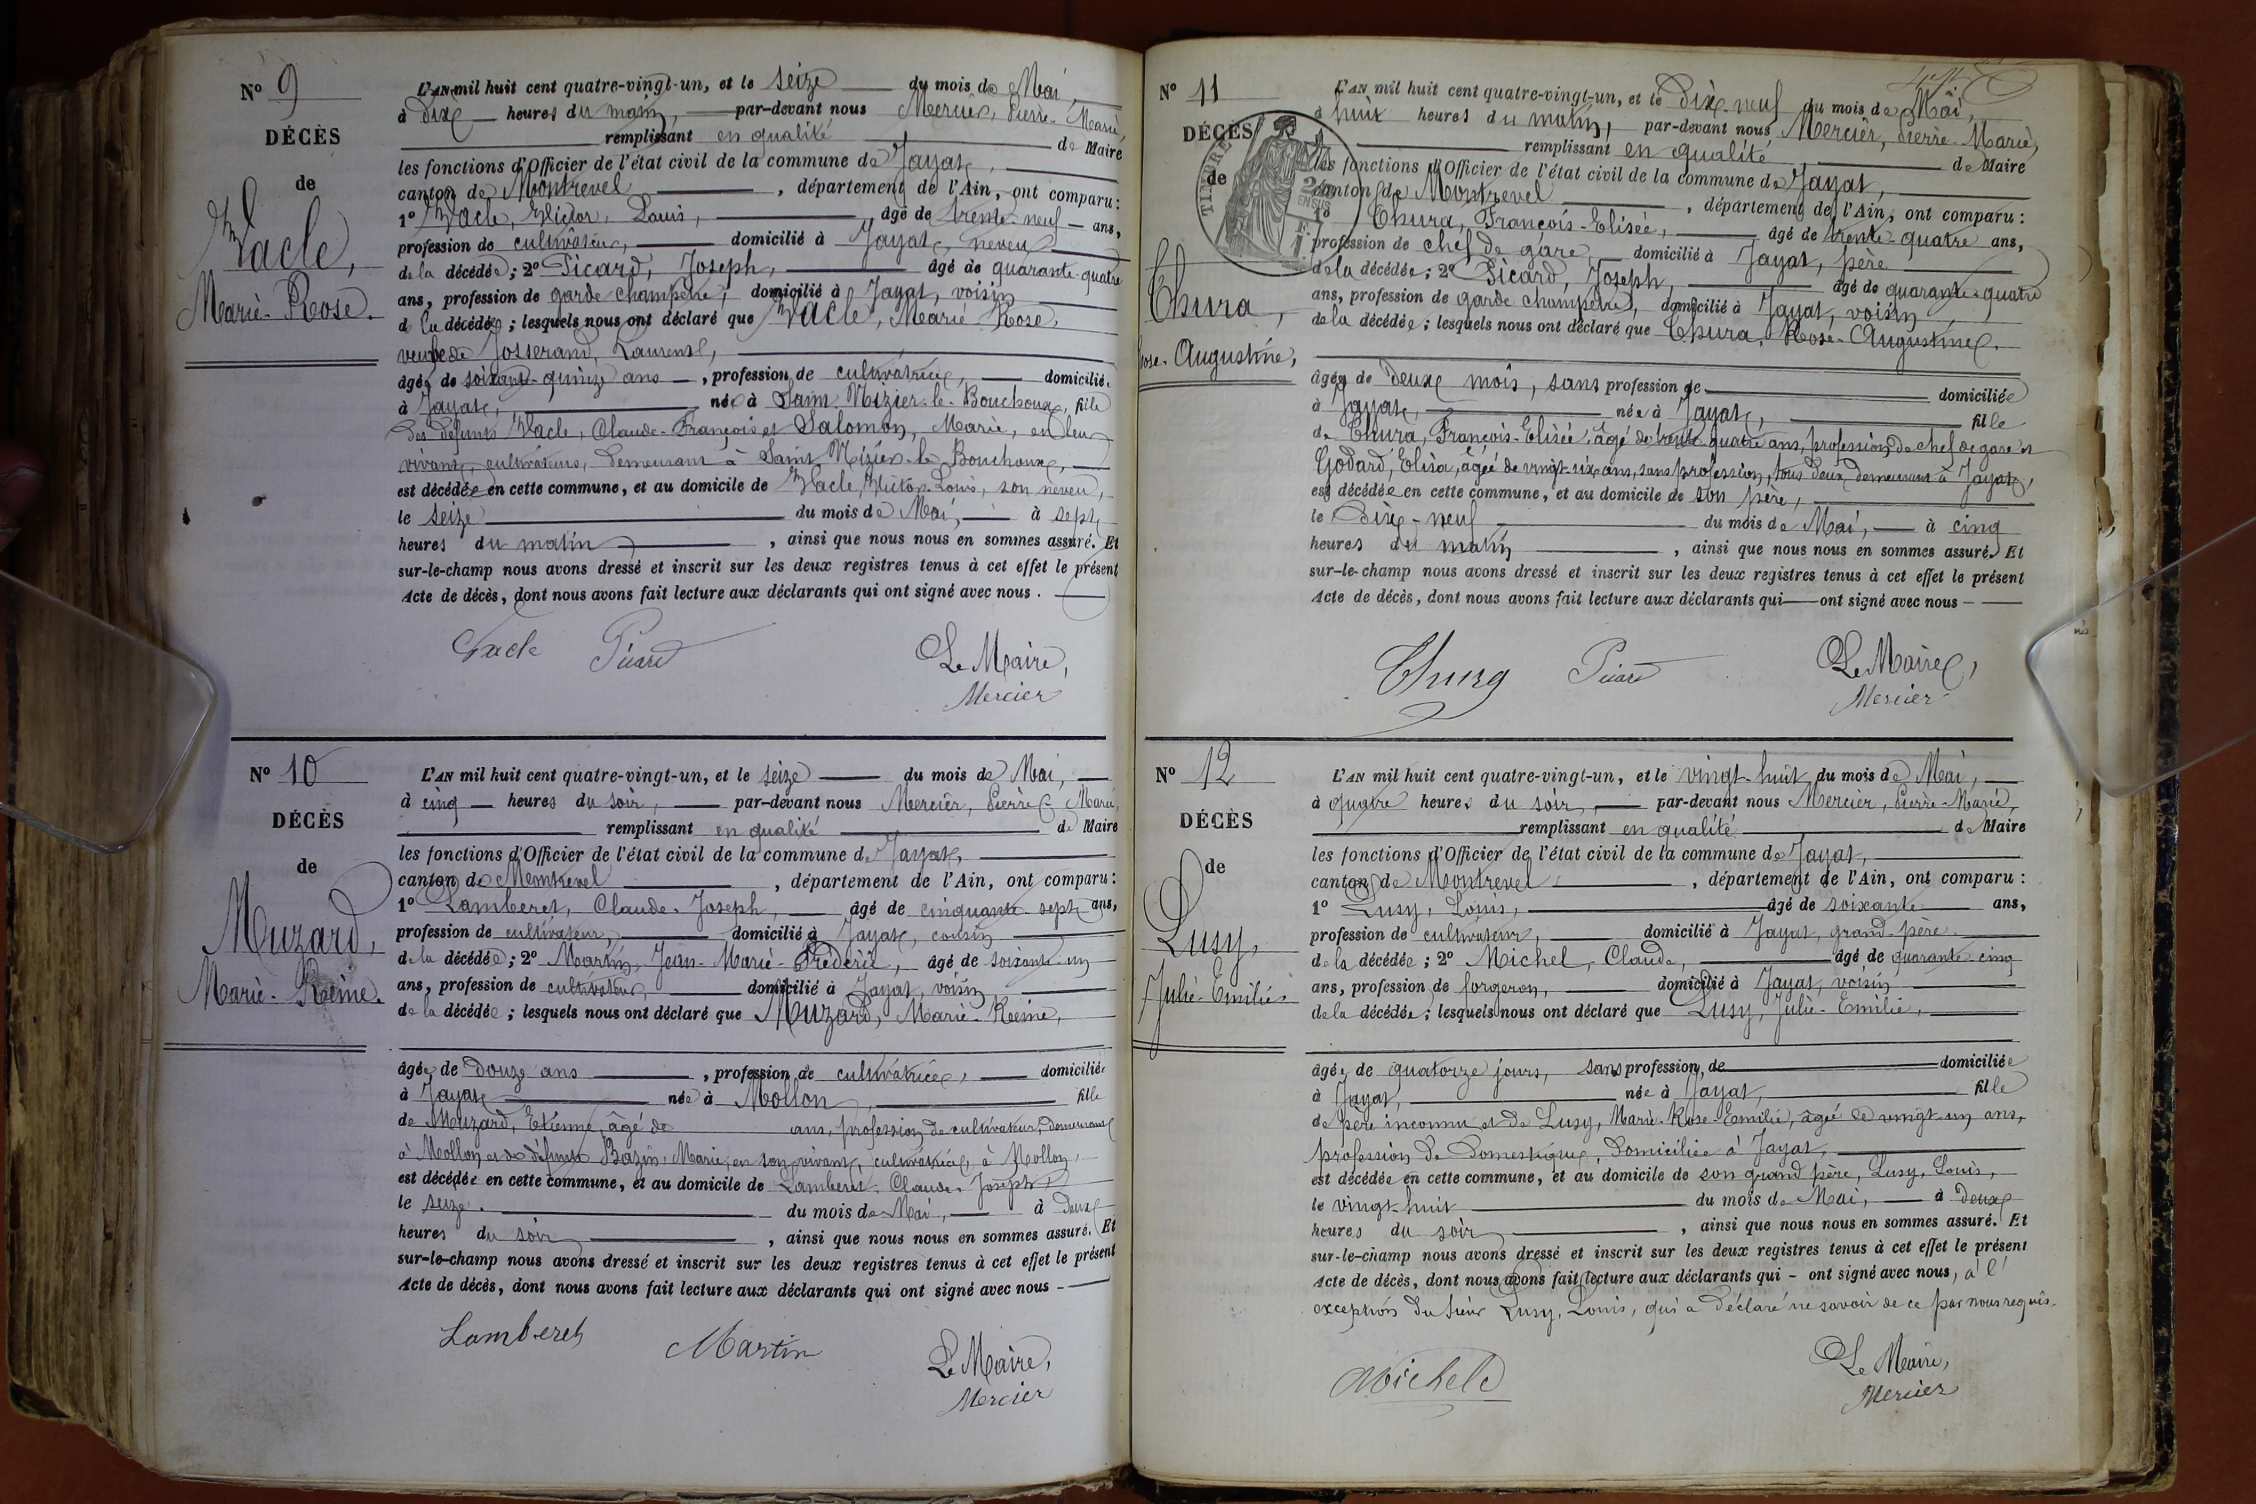 Nº 9
DÉCÈS
de
Vacle,
Marie-Rose.
L'AN mil huit cent quatre-vingt-un, et le seize du mois de Mai,
à dix heures du matin, par-devant nous Mercier, Pierre-Marie,
remplissant en qualité de Maire
les fonctions d'Officier de l'état civil de la commune de Jayat,
canton de Montrevel, département de l'Ain, ont comparu :
1º Vacle, Victor, Louis, âgé de trente-neuf ans,
profession de cultivateur, domicilié à Jayat, neveu
de la décédée ; 2º Picard, Joseph, âgé de quarante-quatre
ans, profession de garde champêtre, domicilié à Jayat, voisin
de la décédée ; lesquels nous ont déclaré que Vacle, Marie-Rose,
veuve de Josserand, Laurent,
âgée de soixante-quinze ans, profession de cultivatrice, domiciliée
à Jayat, née à Saint Nizier-le-Bouchoux, fille
des défunts Vacle, Claude-François et Salomon, Marie, en leur
vivant, cultivateurs, demeurant à Saint Nizier-le-Bouchoux,
est décédée en cette commune, et au domicile de Vacle, Victor-Louis, son neveu,
le seize du mois de Mai, à sept
heures du matin, ainsi que nous nous en sommes assuré. Et
sur-le-champ nous avons dressé et inscrit sur les deux registres tenus à cet effet le présent
Acte de décès, dont nous avons fait lecture aux déclarants qui ont signé avec nous.
Vacle Picard Le Maire,
Mercier
Nº 10
DÉCÈS
de
Muzard,
Marie-Reine.
L'AN mil huit cent quatre-vingt-un, et le seize du mois de Mai,
à cinq heures du soir, par-devant nous Mercier, Pierre Marie,
remplissant en qualité de Maire
les fonctions d'Officier de l'état civil de la commune de Jayat,
canton de Montrevel, département de l'Ain, ont comparu :
1º Lamberet, Claude-Joseph, âgé de cinquante-sept ans,
profession de cultivateur, domicilié à Jayat, cousin
de la décédée ; 2º Martin, Jean-Marie-Frédéric, âgé de soixante-un
ans, profession de cultivateur, domicilié à Jayat, voisin
de la décédée ; lesquels nous ont déclaré que Muzard, Marie-Reine,
âgée de douze ans, profession de cultivatrice, domiciliée
à Jayat née à Mollon, fille
de Muzard, Etienne, âgé de ans, profession de cultivateur, demeurant
à Mollon et de défunte Bazin, Marie, en son vivant, cultivatrice, à Mollon,
est décédée en cette commune, et au domicile de Lamberet, Claude-Joseph,
le seize du mois de Mai, à deux
heures du soir, ainsi que nous nous en sommes assuré. Et
sur-le-champ nous avons dressé et inscrit sur les deux registres tenus à cet effet le présent
Acte de décès, dont nous avons fait lecture aux déclarants qui ont signé avec nous
Lamberet Martin Le Maire,
Mercier
Nº 11
DÉCÈS
de
TIMBRE
Thura,
Rose-Augustine,
L'AN mil huit cent quatre-vingt-un, et le dix-neuf du mois de Mai,
à huit heures du matin, par-devant nous Mercier, Pierre-Marie,
remplissant en qualité de Maire
les fonctions d'Officier de l'état civil de la commune de Jayat,
canton de Montrevel, département de l'Ain, ont comparu :
1º Thura, François-Elisée, âgé de trente-quatre ans,
profession de chef de gare, domicilié à Jayat, père
de la décédée ; 2º Picard, Joseph, âgé de quarante-quatre
ans, profession de garde champêtre, domicilié à Jayat, voisin
de la décédée ; lesquels nous ont déclaré que Thura, Rose-Augustine,
âgée de deux mois, sans profession de domiciliée
à Jayat, née à Jayat, fille
de Thura, François-Elisée, âgé de trente quatre ans, profession de chef de gare et
Godard, Elisa, âgée de vingt-six ans, sans profession, tous deux demeurant à Jayat,
est décédée en cette commune, et au domicile de son père,
le dix-neuf du mois de Mai, à cinq
heures du matin, ainsi que nous nous en sommes assuré. Et
sur-le-champ nous avons dressé et inscrit sur les deux registres tenus à cet effet le présent
Acte de décès, dont nous avons fait lecture aux déclarants qui ont signé avec nous
Thura Picard Le Maire,
Mercier
Nº 12
DÉCÈS
de
Lusy,
Julie-Emilie
L'AN mil huit cent quatre-vingt-un, et le vingt-huit du mois de Mai,
à quatre heures du soir, par-devant nous Mercier, Pierre-Marie,
remplissant en qualité de Maire
les fonctions d'Officier de l'état civil de la commune de Jayat,
canton de Montrevel, département de l'Ain, ont comparu :
1º Lusy, Louis, âgé de soixante ans,
profession de cultivateur, domicilié à Jayat, grand-père
de la décédée ; 2º Michel, Claude, âgé de quarante cinq
ans, profession de forgeron, domicilié à Jayat, voisin
de la décédée ; lesquels nous ont déclaré que Lusy, Julie-Emilie,
âgée de quatorze jours, sans profession, de domiciliée
à Jayat, née à Jayat, fille
de père inconnu et de Lusy, Marie-Rose-Emilie, âgée de vingt-un ans,
profession de domestique, domiciliée à Jayat,
est décédée en cette commune, et au domicile de son grand père, Lusy, Louis,
le vingt-huit du mois de Mai, à deux
heures du soir, ainsi que nous nous en sommes assuré. Et
sur-le-champ nous avons dressé et inscrit sur les deux registres tenus à cet effet le présent
Acte de décès, dont nous avons fait lecture aux déclarants qui - ont signé avec nous, à l'
exception du sieur Lusy, Louis, qui a déclaré ne savoir de ce par nous requis.
Michel Le Maire,
Mercier